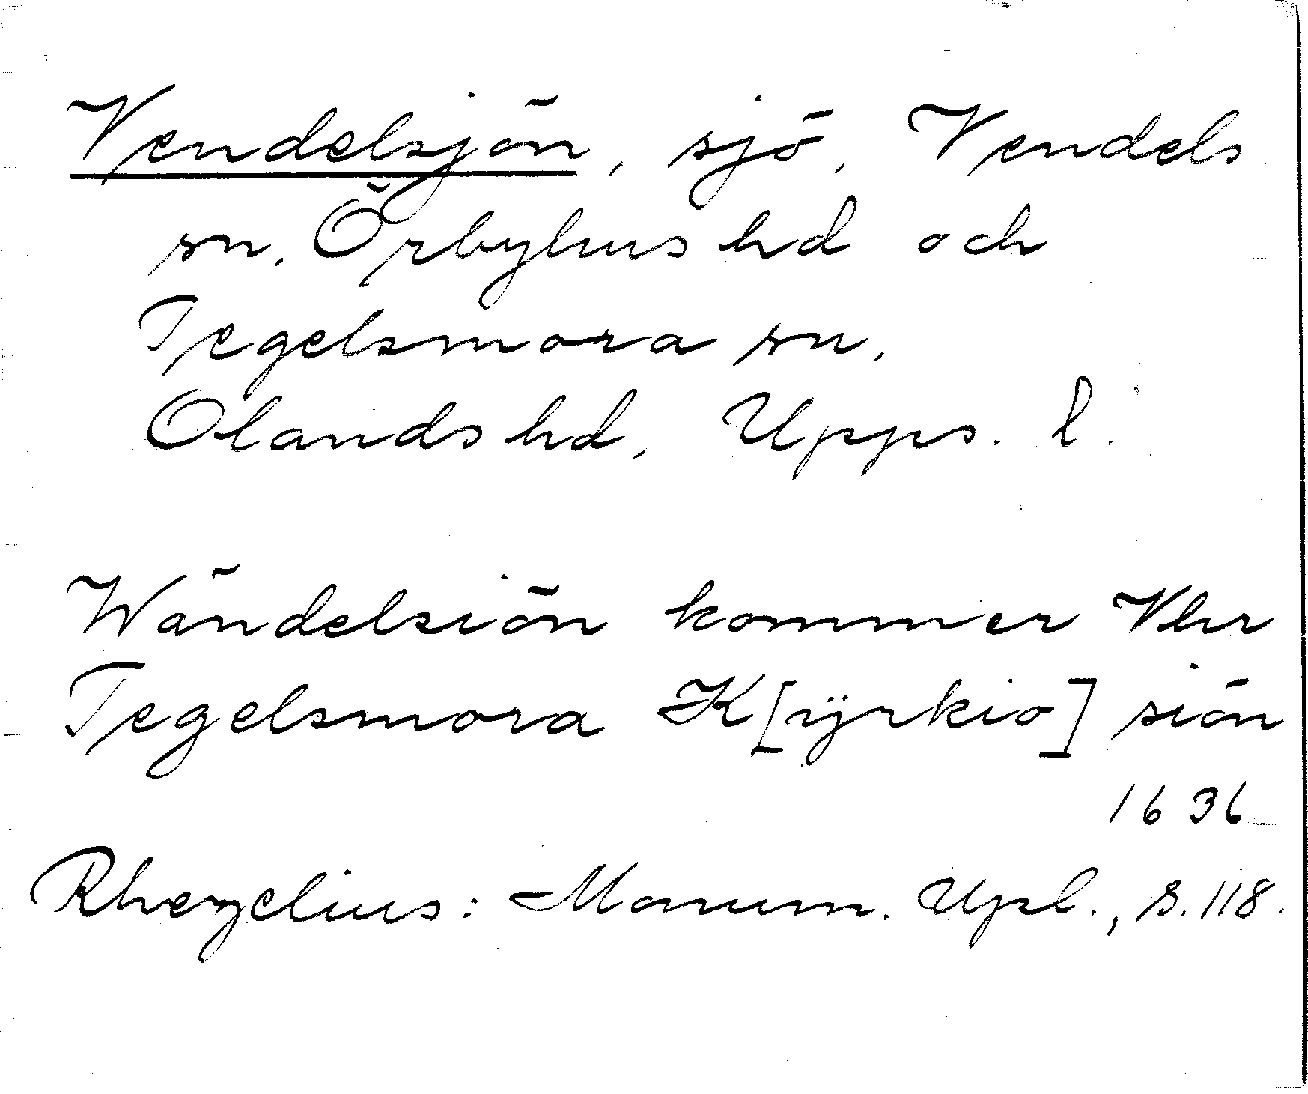 Vendelsjön, sjö, Vendels
sn, Örbyhus hd och
Tegelsmora sn,
Olands hd, Upps. l.
Wändelsiön kommer Vhr
Tegelsmora K[ÿrkio] siön
1636
Rhezelius: Monum. Upl., s. 118.